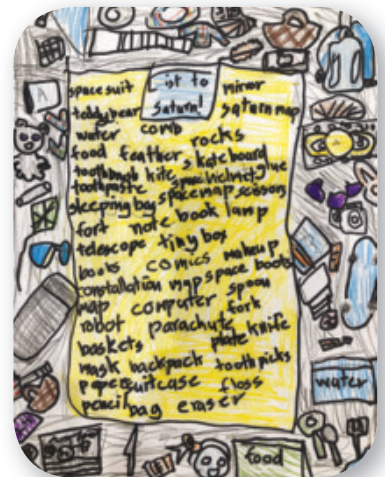 ist to
Saturn!
space suit
mirror
teddy bear
saturn map
water comb
rocks
food feather skateboard
toothbrush kite space helmet glue
toothpaste space map scissors
sleeping bag
fort note book lamp
telescope tiny box
books comics makeup
constallation map space boots
map computer spoon
robot parachute fork
baskets plate knife
mask backpack tooth picks
paper suitcase floss
pencil bag eraser
water
food